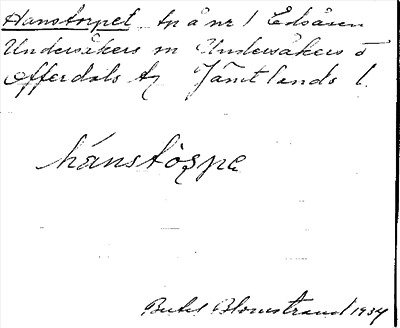 Hanstorpet tp å nr 1 Edsåsen
Undersåkers sn Undersåkers o
Offerdals tg Jämtlands l.
hánstòṣpe
Bertil Blomstrand 1934